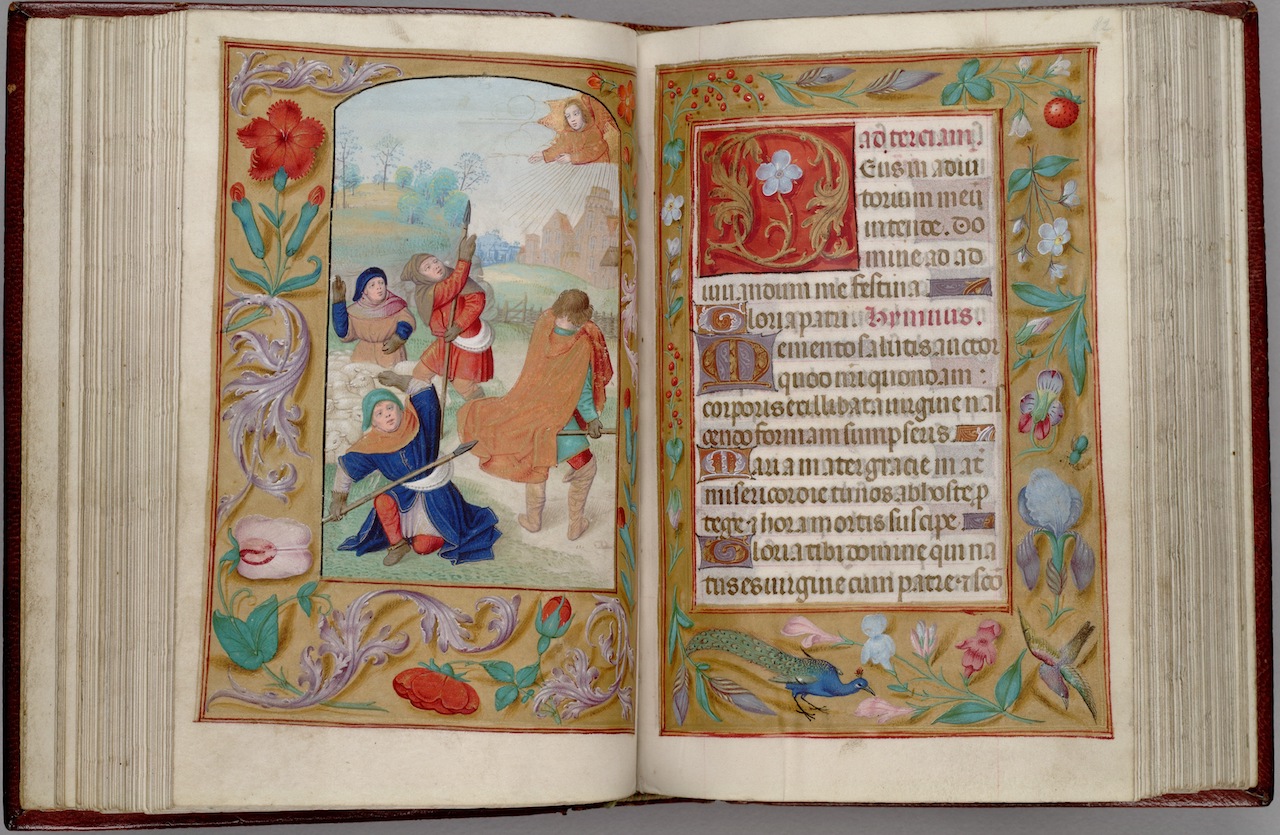 ad terciam.
Deus in adiu
torium meū
intende. Do
mine ad ad
iuuandum me festina
Gloria patri Hymnus.
Memento salutis auctor
quod nr̄i quondam
corporis ex illibata uirgine nas
cendo formam sumpseris
Maria mater gracie mat̄
misericordie tu nos ab hoste p
tege ⁊ hora mortis suscipe
Gloria tibi domine qui na
tus es uirgine cum patre ⁊ sc̄o